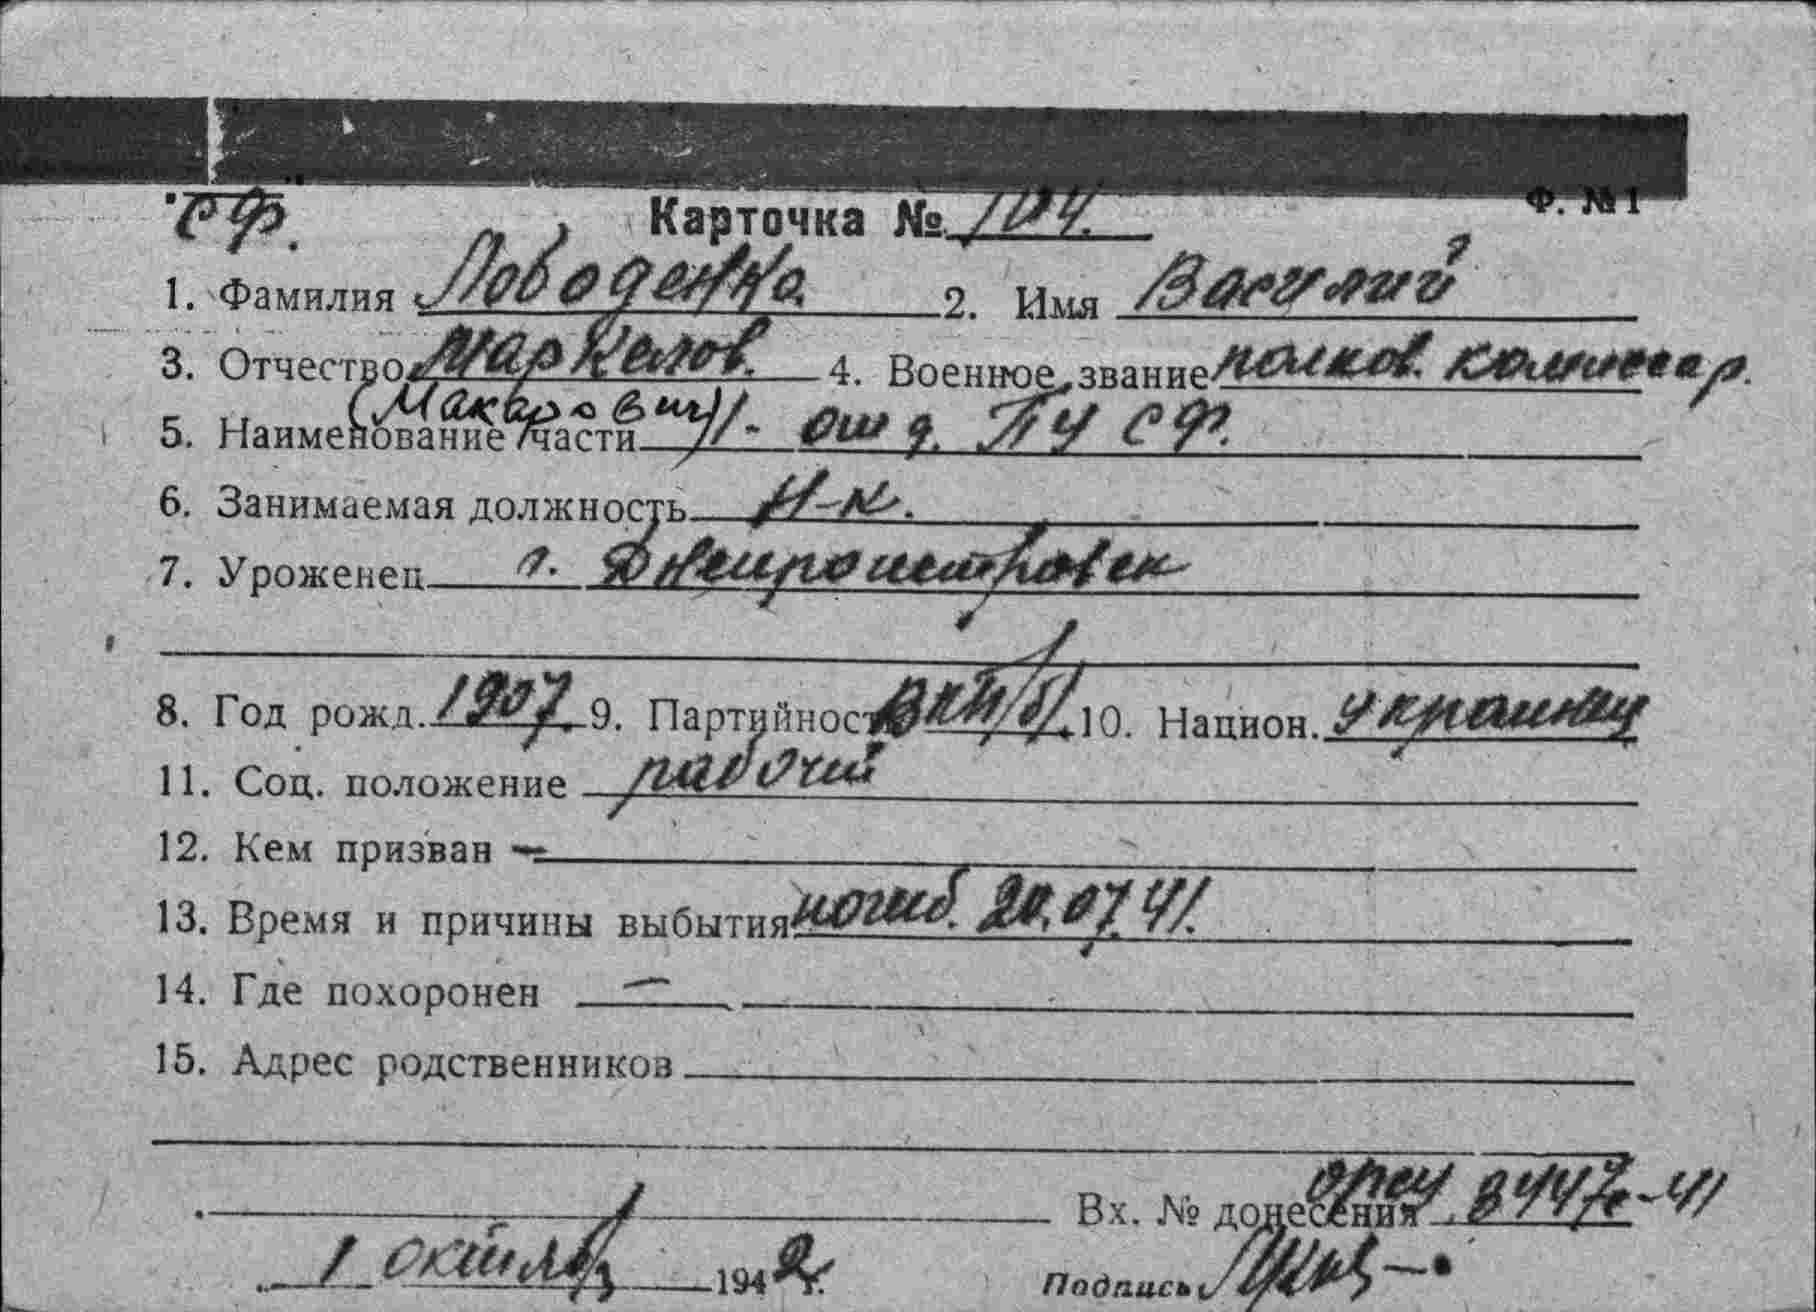 "СФ". Карточка № 104. Ф. №1
1. Фамилия Поводенко 2. Имя Василий
3. Отчество Маркелов. 4. Военное звание полков. комиссар.
(Макарович)
5. Наименование части 1-отд. ПУ СФ.
6. Занимаемая должность Н-к.
7. Уроженец г. Днепропетровск
8. Год рожд. 1907. 9. Партийность ВКП/б/. 10. Национ. украинец
11. Соц. положение рабочий
12. Кем призван —
13. Время и причины выбытия погиб. 20.07.41.
14. Где похоронен —
15. Адрес родственников
Вх. № донесения 8447с-41
1 октября 1942г. Подпись